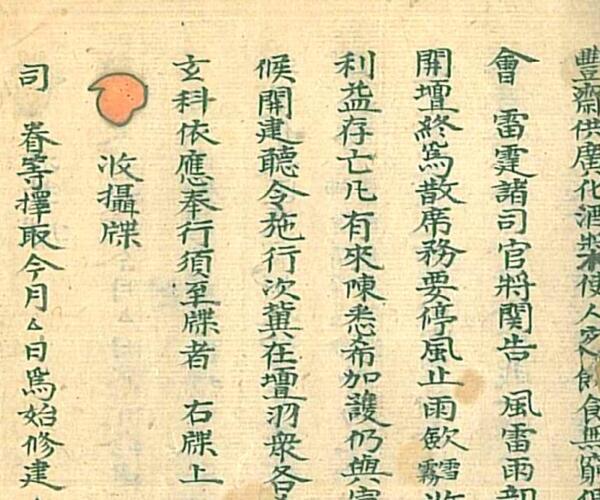 豐齋供廣化酒將使人人飽食無窮
會 雷霆諸司官將関告 風雷雨部
開壇終為散席務要停風止雨歛霧雪收
利益存亡凡有來陳悉希加護仍與
候開建聽令施行次冀在壇羽衆各
玄科依應奉行須至牒者 右牒上
收攝牒
司 眷等擇取今月厶日為始修建